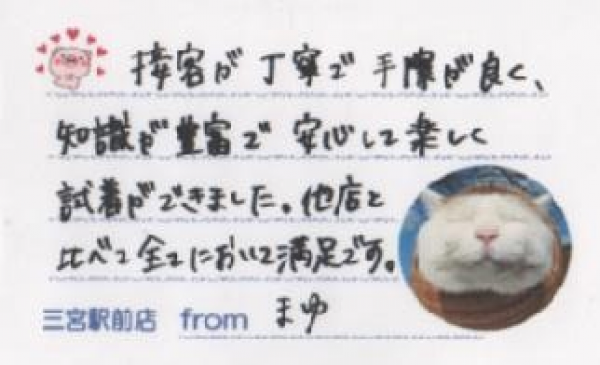 接客が丁寧で手際が良く、
知識が豊富で安心して楽しく
試着ができました。他店と
比べて全てにおいて満足です。
三宮駅前店 from まゆ